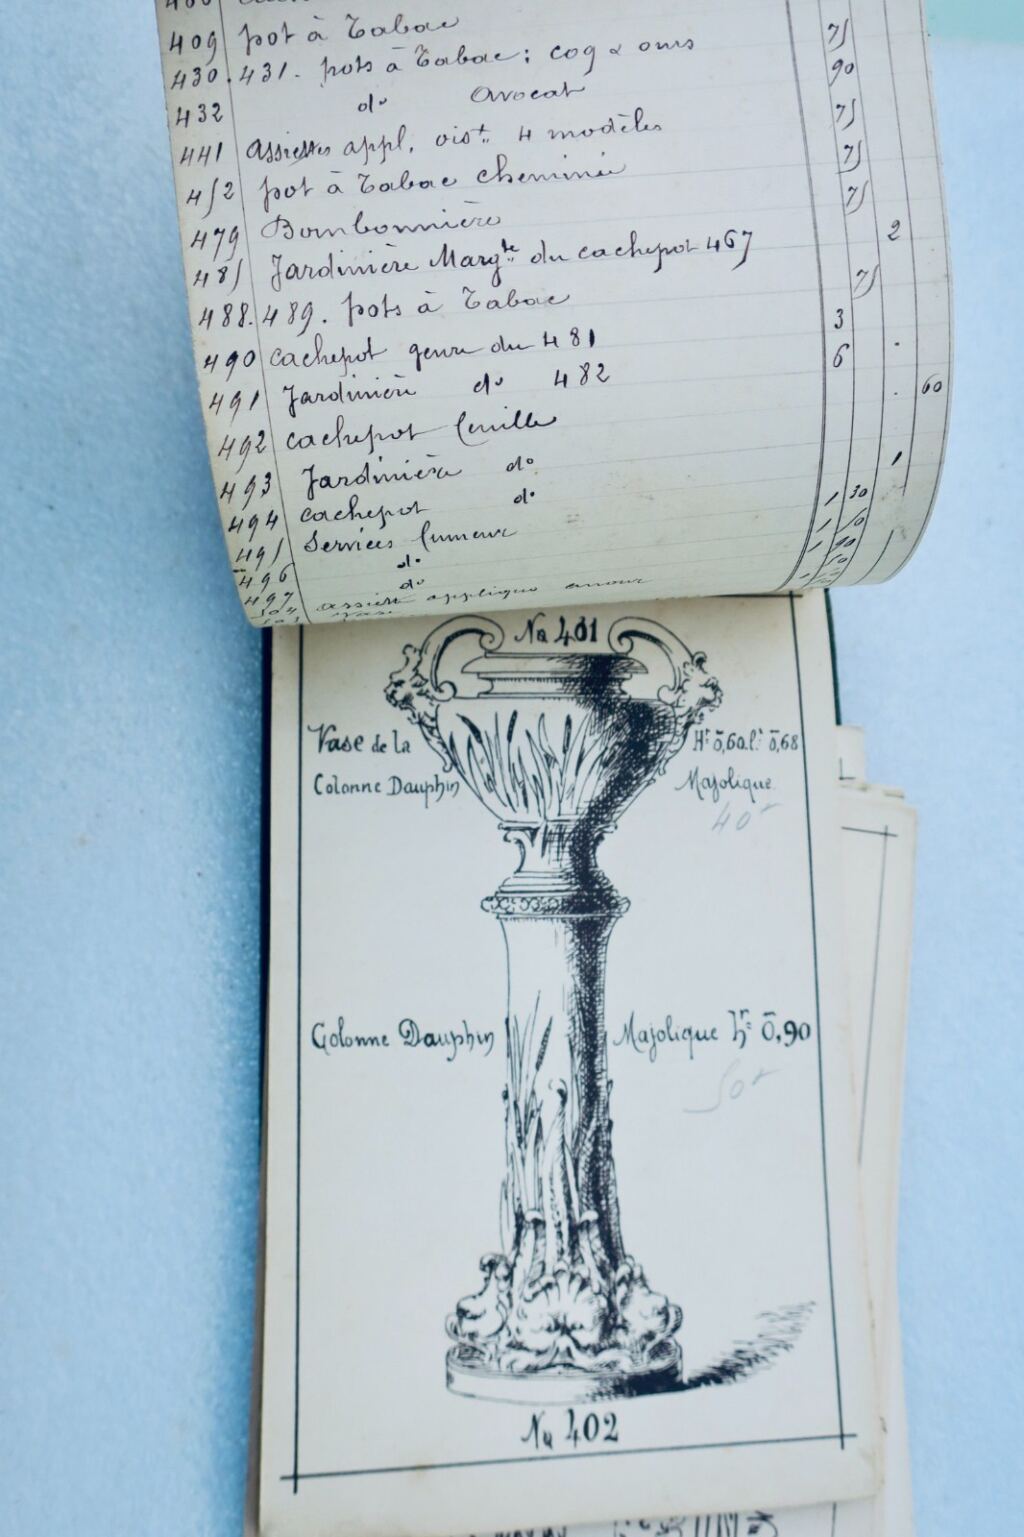 409 pot à Tabac 75
430.431. pots à Tabac; coq & ours 90
432 do Avocat 75
441 assiettes appl. oist. 4 modèles 75
452 pot à Tabac cheminée 75
479 Bombonnière
485 Jardinière Margte du cachepot 467 2
488.489. pots à Tabac 75
490 cachepot genre du 481 3
491 Jardinière do 482 6
492 cachepot feuille 60
493 Jardinière do
494 cachepot do 1
495 Services fumeur 1 30
496 do 1 50
497 do 1 90
assiette applique amour
vase
No 401
Vase de la
Colonne Dauphin
Hr 0,60. lr 0,68
Majolique
40 f
Colonne Dauphin
Majolique hr 0,90
50 f
No 402